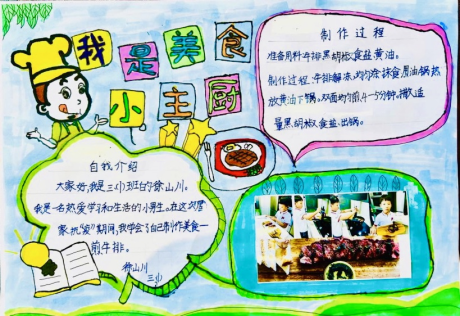 我是美食
小主厨
制作过程
准备用料:牛排黑胡椒食盐黄油。
制作过程:牛排解冻,均匀涂抹食盐油锅热
放黄油下锅。双面均煎4-5分钟,撒适
量黑胡椒食盐、出锅。
自我介绍
大家好,我是三(1)班的徐山川。
我是一名热爱学习和生活的小男生。在这次居
家抗"疫"期间,我学会了自己制作美食一
煎牛排。
徐山川
三(1)